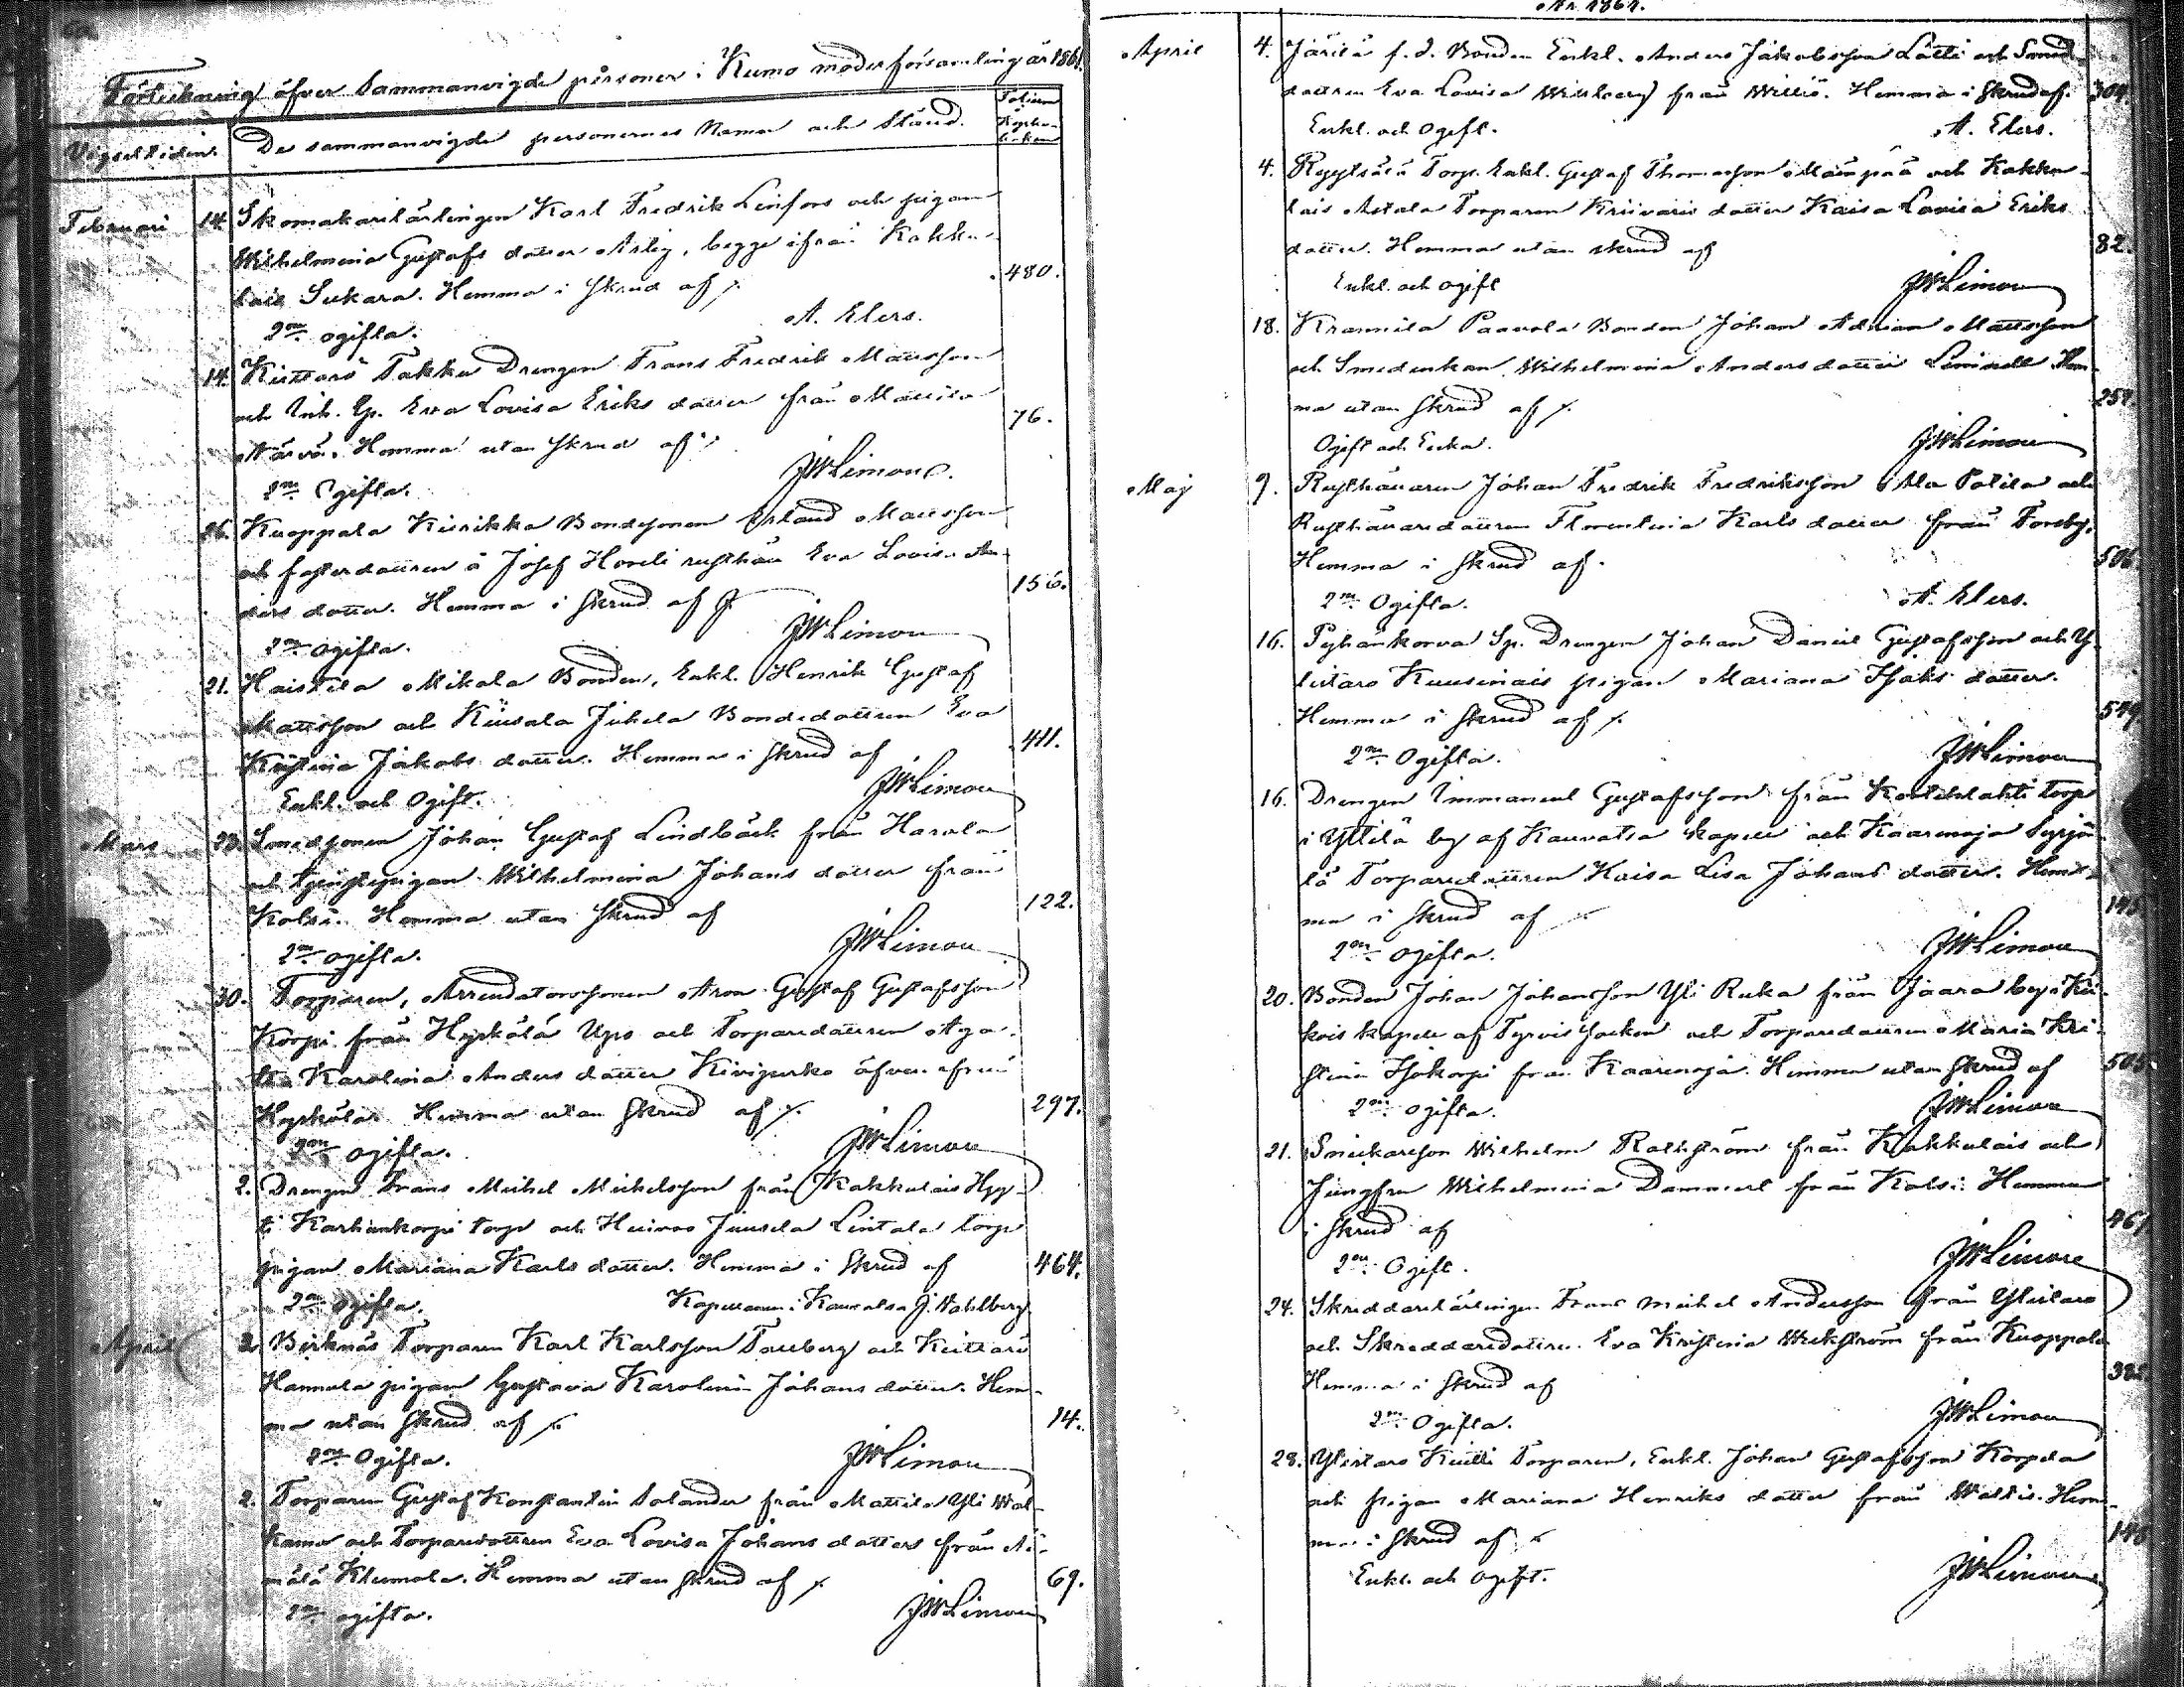 Förteckning öfver Sammanvigde personer i Kumo moderförsamling år 1861.
Vigseltiden.
De sammanvigde personernes Namn och Stånd.
Folium
Februari 14. Skomakarilärlingen Karl Fredrik Linfors och pigan
Wilhelmina Gustafs dotter Arlig, begge ifrån Kakku-
lais Sukara. Hemma i Skrud af
480.
2ne ogifta. A. Elers.
14. Kiettarö Takku Drengen Frans Fredrik Matsson
och Inh. Eva Lovisa Eriks dotter från Mattila
Närvä. Hemma utan Skrud af
76.
2ne Ogifta. JW Limon
26. Kuoppala Kiirikka Bondesonen Erland Matsson
och fosterdottren å Josef Hoveli rusthåll Eva Lovisa An-
ders dotter. Hemma i Skrud af
156.
2ne ogifta. JW Limon
21. Haistila Mikola Bonden, Enkl. Henrik Gustaf
Mattsson och Kiusala Juhela Bondedottren Eva
Kristina Jakobs dotter. Hemma i Skrud af
411.
Enkl. och Ogift. JW Limon
Mars 23. Smedsonen Johan Gustaf Lindbäck från Harola
och tjenstepigan Wilhelmina Johans dotter från
Kolsi. Hemma utan Skrud af
122.
2ne ogifta. JW Limon
30. Torparen, Arrendatorssonen Aron Gustaf Gustafsson
Korpi från Hyrkölä Ups och Torparedottren Aga-
ta Karolina Anders dotter Kivipurko äfven ifrån
Hyrkölä. Hemma utan Skrud af
297.
2ne ogifta. JW Limon
2. Drengen Frans Mickel Mickelsson från Kakkulais Hyy-
ti Karhunkorpi torp och Huivoo Juusela Lintala torp
pigan Mariana Karls dotter. Hemma i Skrud af
464.
2ne ogifta. Kapellanen i Kauvatsa J. Wahlberg
April 2. Birknäs Torparen Karl Karlsson Tauberg och Keittarö
Hannula pigan Gustava Karolina Johans dotter. Hem-
ma utan Skrud af
14.
2ne Ogifta. JW Limon
" 2. Torparen Gustaf Konstantin Solander från Mattila Yli Wal-
kama och Torparedottren Eva Lovisa Johans dotter från Ai-
mälä Klemola. Hemma utan Skrud af
69.
2ne ogifta. JW Limon
År 1861.
April 4. Järilä f. d. Bonden Enkl. Anders Jakobsson Lätti och Smed-
dottren Eva Lovisa Willberg från Williö. Hemma i Skrud af.
304.
Enkl. och Ogift. A. Elers.
4. Ryytsälä Torp. Enkl. Gustaf Thomasson Mäenpää och Kakku-
lais Astala Torparen Kriivaris dotter Kaisa Lovisa Eriks
dotter. Hemma utan skrud af
82.
Enkl. och ogift JW Limon
18. Krannila Paavola Bonden Johan Adrian Mattsson
och Smedenkan Wilhelmina Andersdotter Liminell. Hem-
ma utan Skrud af
259
Ogift och Enka. JW Limon
Maj 9. Rusthållaren Johan Fredrik Fredriksson Ala Potila och
Rusthållaredottren Florentina Karls dotter från Forsby,
Hemma i Skrud af.
506
2ne Ogifta. A. Elers.
16. Pyhänkorva Sp. Drengen Johan Daniel Gustafsson och Y-
listaro Kuusinais pigan Mariana Isaks dotter.
Hemma i Skrud af
549
2ne Ogifta. JW Limon
16. Drengen Immanuel Gustafsson från torp
i Yttilä by af Kauvatsa kapell och Kaarenoja Syrjä-
lä Torparedottren Kaisa Lisa Johans dotter. Hem-
ma i Skrud af
145
2ne ogifta. JW Limon
20. Bonden Johan Johansson Yli Ruka från Jaara by i Kii-
kois kapell af Tyrvis Socken och Torparedottren Maria Kri-
stina Isokorpi från Kaarenoja. Hemma utan Skrud af
505
2ne ogifta. JW Limon
21. Snickarson Wilhelm Rothström från Kakkulais och
Jungfru Wilhelmina Dammert från Kolsi. Hemma
i Skrud af
461
2ne Ogift. JW Limon
24. Skreddarelärlingen Frans Mickel Andersson från Ylistaro
och Skreddaredottren Eva Kristina Wickström från Kuoppala
Hemma i Skrud af
382
2ne Ogifta. JW Limon
28. Ylistaro Knutti Torparen, Enkl. Johan Gustafsson Korpela
och pigan Mariana Henriks dotter från Wallis. Hem-
ma i Skrud af
148
Enkl. och ogift. JW Limon